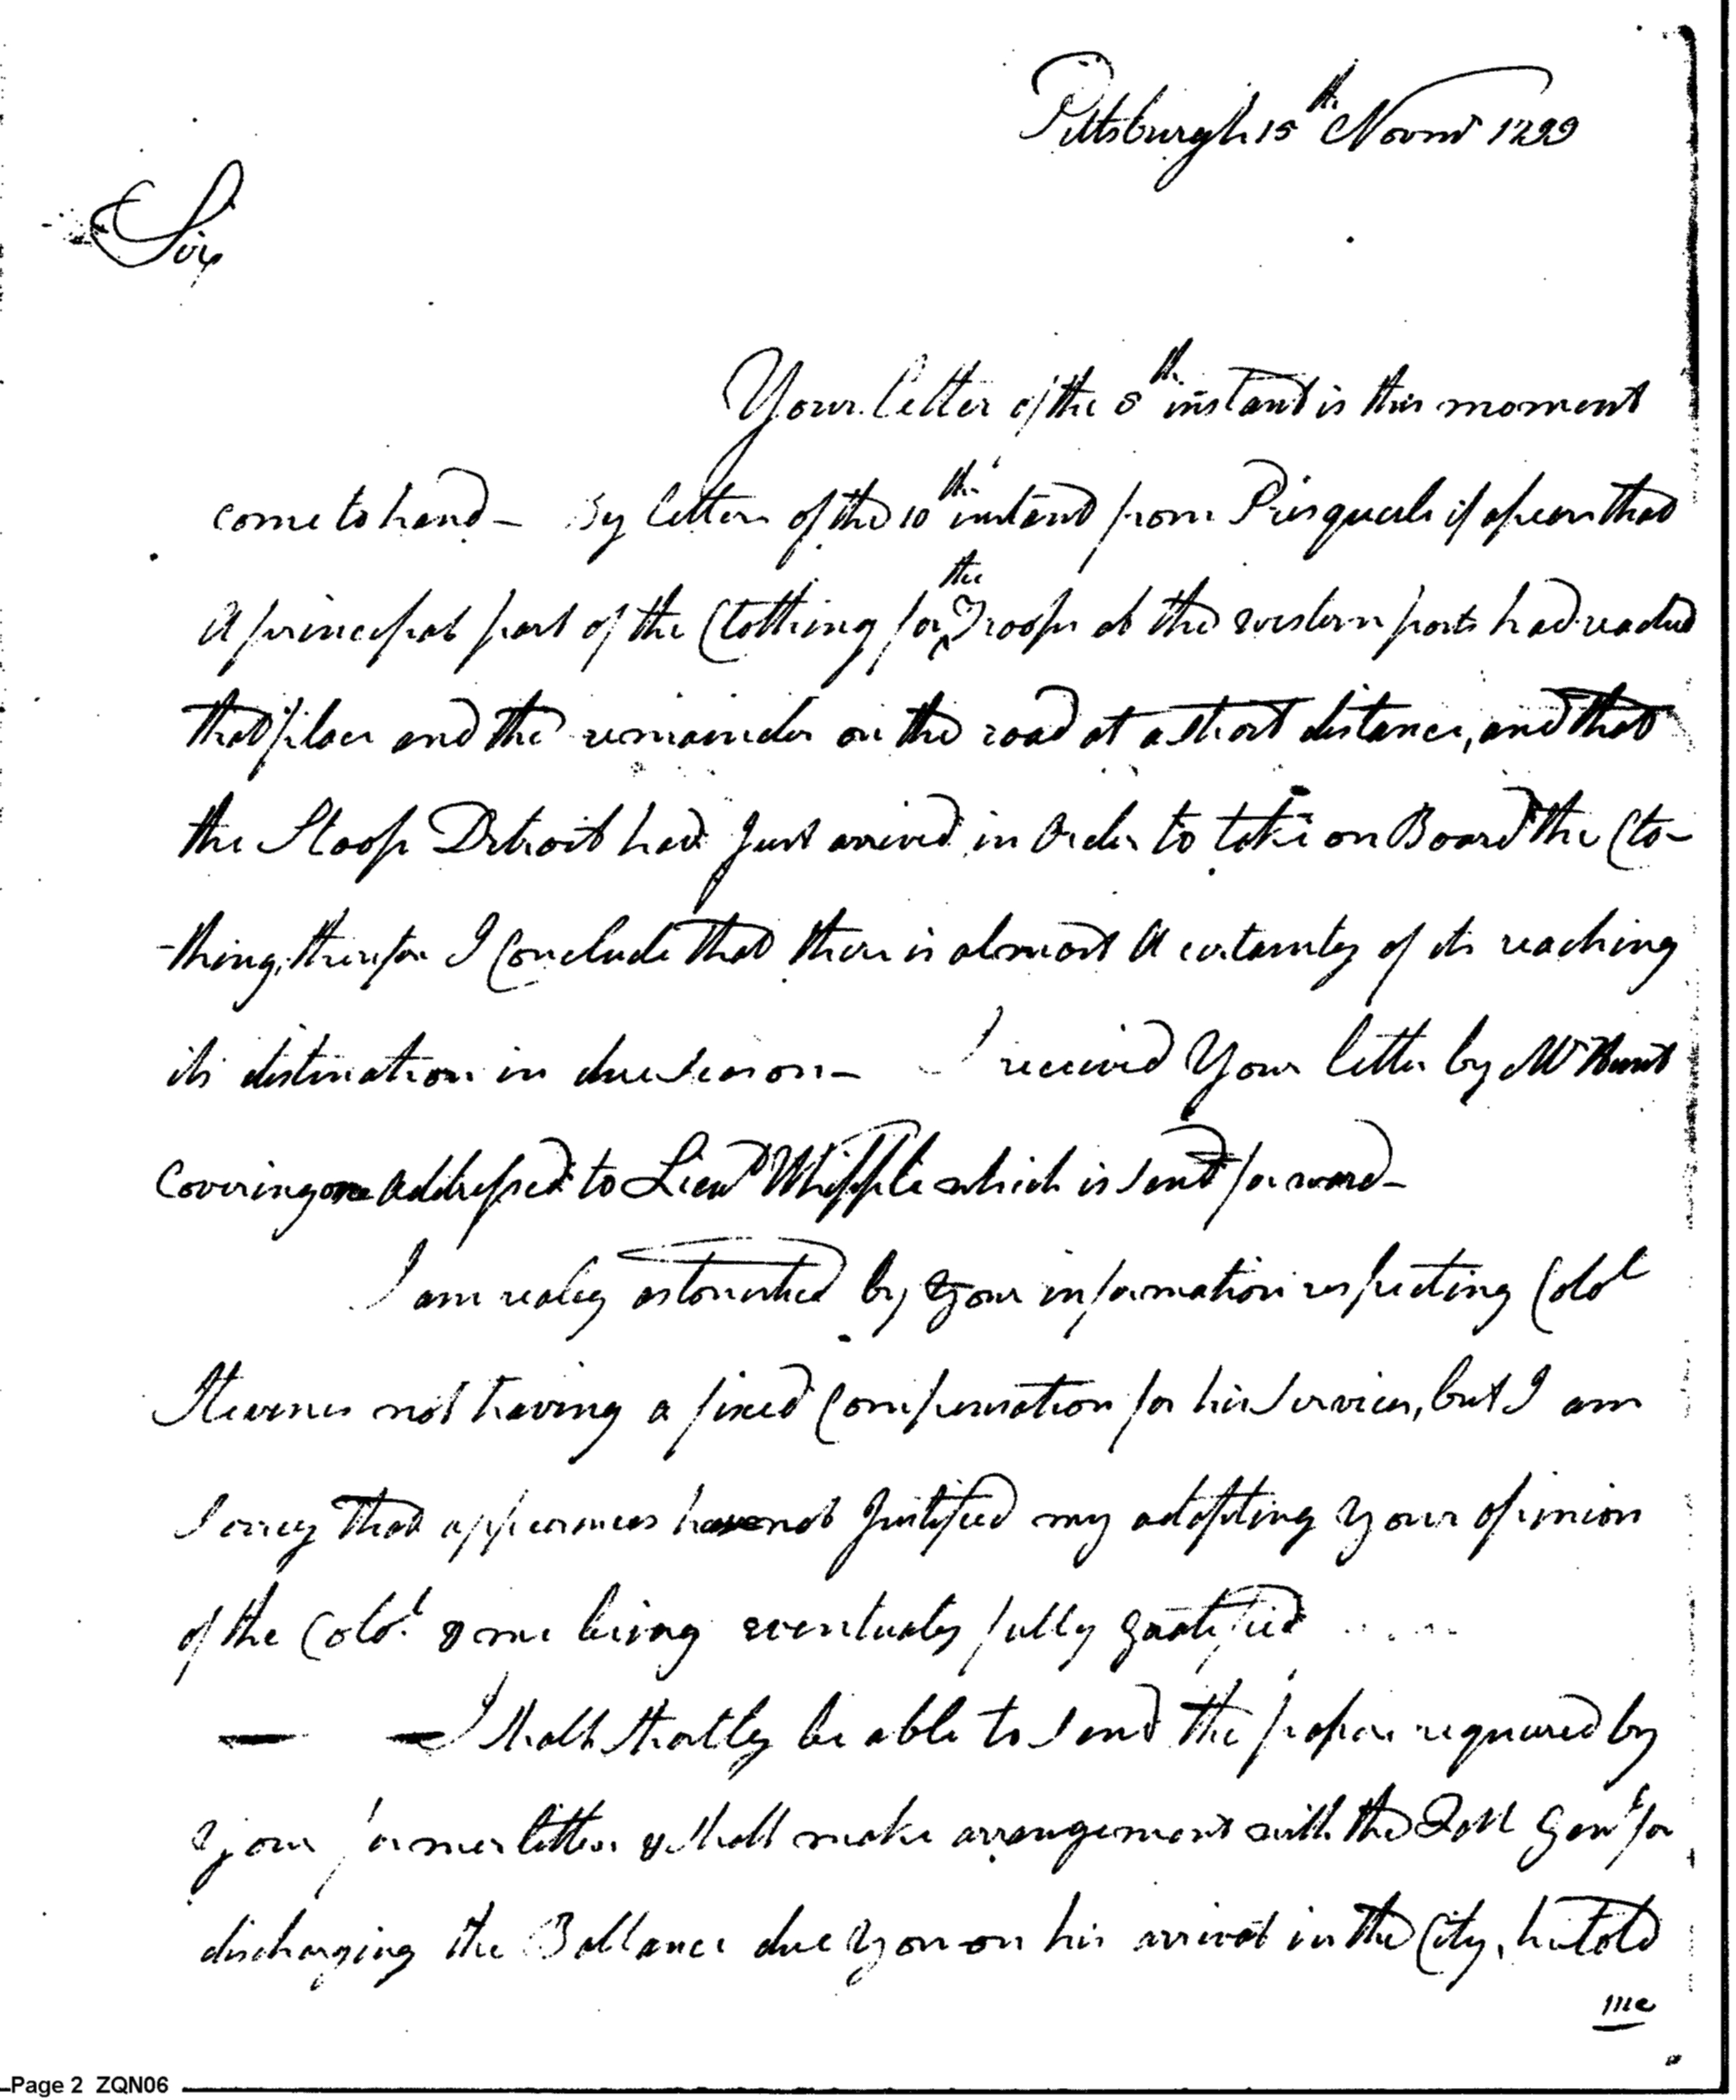 Pittsburgh 15th Novmr 1799
Sir
Your letter of the 8th instant is this moment
come to hand – By letters of the 10th instant from Prisqueile it apears that
A principal part of the Clothing for the Troops at the western posts had reached
that place and the remainder on the road at a short distance, and that
the Sloop Detroit had Just arrived in Order to take on Board the Clo-
-thing, therefor I Conclude that there is almost A certainty of its reaching
its distination in due season – I received Your letter by Mr Hunt
Covering one Addressed to Lieut Whipple which is sent forward –
I am realy astonished by Your information respecting Colol
Stevens not having a fixed Compensation for his Services, but I am
Sorrey that appearances have not Justified my adopting Your opinion
of the Colol. & me being eventualy fully gratified
— — I shall Shortly be able to Send the papers required by
Your former letters & shall make arrangement with the QM Genl for
discharging the Ballance due You on his arrival in the City, he told
me
Page 2 ZQN06